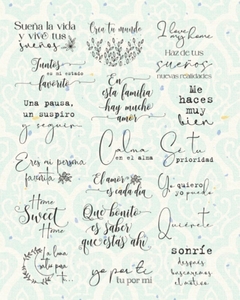 Sueña la vida
y vive tus
sueños
Crea tu mundo
I love
my home
Haz de tus
sueños
nuevas realidades
Juntos
en mi estado
favorito
En
esta familia
hay mucho
amor
Me
haces
muy
bien
Una pausa,
un suspiro
y seguir
Calma
en el alma
Se tu
prioridad
Eres mi persona
favorita
El amor
es cada día
Yo quiero
yo puedo
Home
Sweet
Home
Que bonito
es saber
que estás ahí
Quiérete
La luna
solo para
ti...
yo por ti
tu por mi
sonríe
después
buscaremos
el motivo